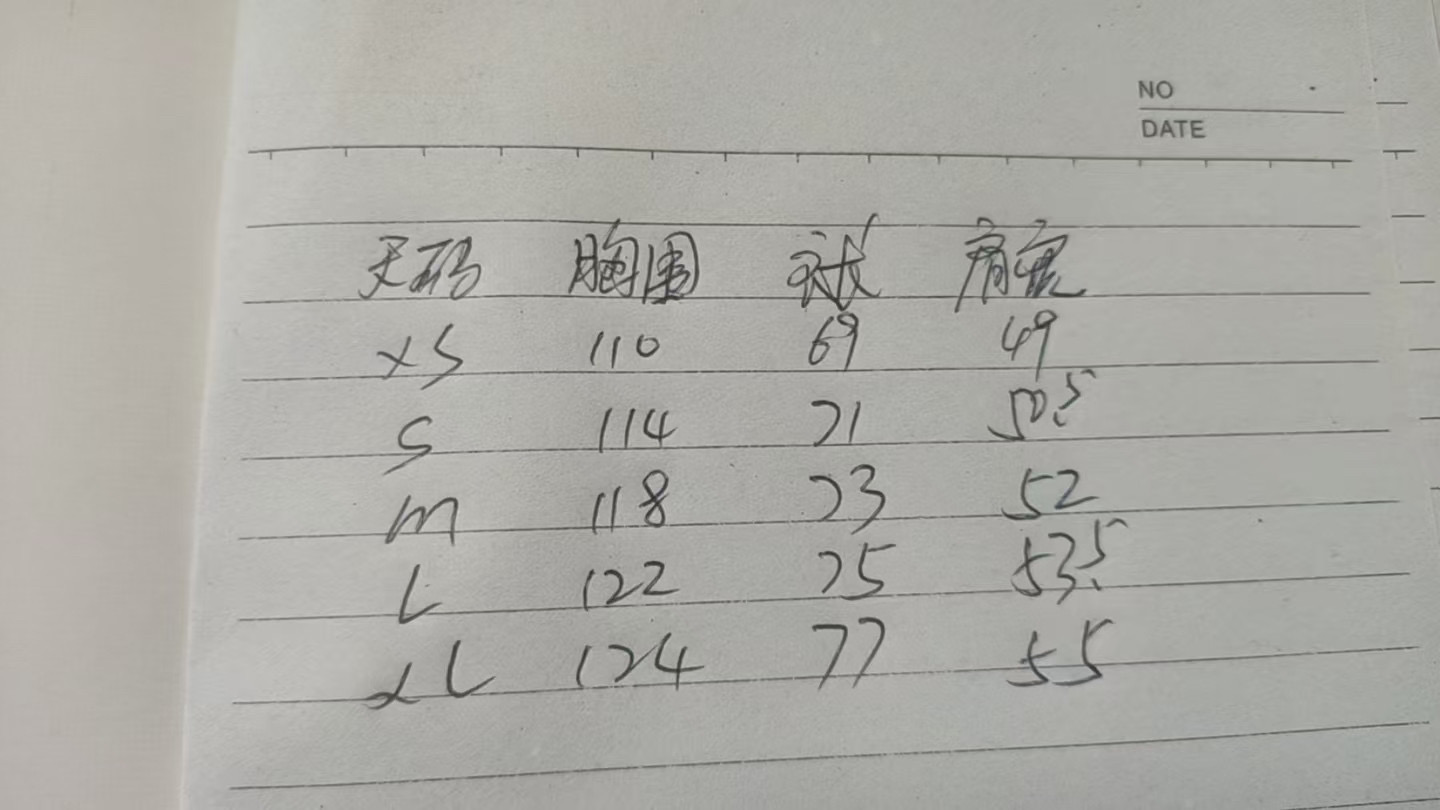 NO
DATE
尺码 胸围 衣长 肩宽
XS 110 69 49
S 114 71 50.5
M 118 73 52
L 122 75 53.5
XL 124 77 55